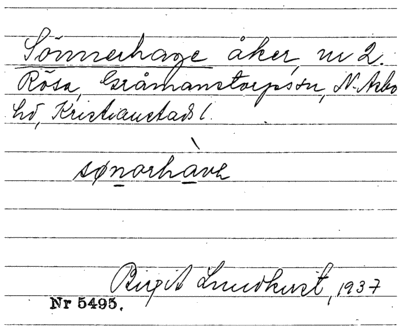 Sönnerhage åker, nr 2.
Rösa, Gråmanstorps sn, N. Åsbo
hd, Kristianstads l.
sønorhàvə
Birgit Lundkvist, 1937
Nr 5495.